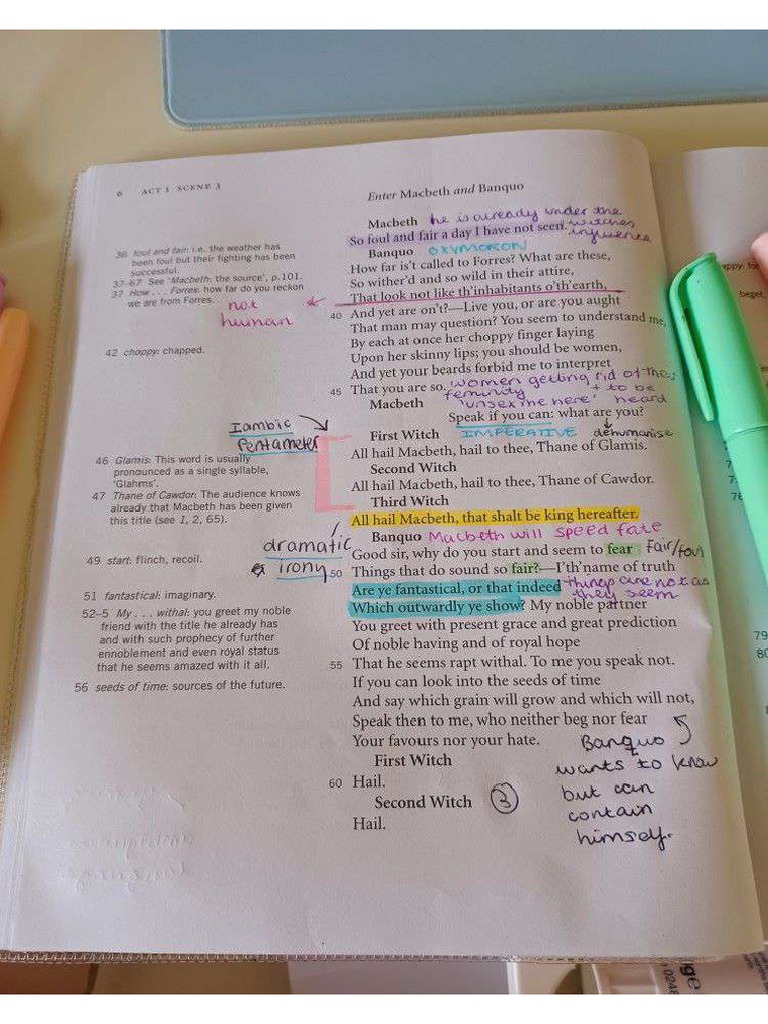 6 ACT 1 SCENE 3
Enter Macbeth and Banquo
Macbeth he is already under the
So foul and fair a day I have not seen. witches
influence
Banquo OXYMORON
How far is't called to Forres? What are these,
So wither'd and so wild in their attire,
That look not like th'inhabitants o'th'earth,
40 And yet are on't?—Live you, or are you aught
That man may question? You seem to understand me,
By each at once her choppy finger laying
Upon her skinny lips; you should be women,
And yet your beards forbid me to interpret
45 That you are so. women getting rid of their
feminity + to be
Macbeth 'unsex me here' heard
Speak if you can: what are you?
First Witch IMPERATIVE dehumanise
All hail Macbeth, hail to thee, Thane of Glamis.
Second Witch
All hail Macbeth, hail to thee, Thane of Cawdor.
Third Witch
All hail Macbeth, that shalt be king hereafter.
Banquo Macbeth will speed fate
Good sir, why do you start and seem to fear Fair/foul
50 Things that do sound so fair?—I'th'name of truth
Are ye fantastical, or that indeed things are not as
they seem
Which outwardly ye show? My noble partner
You greet with present grace and great prediction
Of noble having and of royal hope
55 That he seems rapt withal. To me you speak not.
If you can look into the seeds of time
And say which grain will grow and which will not,
Speak then to me, who neither beg nor fear
Your favours nor your hate.
First Witch
60 Hail.
Second Witch 3
Hail.
Banquo
wants to know
but can
contain
himself.
36 foul and fair: i.e. the weather has
been foul but their fighting has been
successful.
37–67 See 'Macbeth: the source', p.101.
37 How . . . Forres: how far do you reckon
we are from Forres.
not
human
42 choppy: chapped.
Iambic
Pentameter
46 Glamis: This word is usually
pronounced as a single syllable,
'Glahms'.
47 Thane of Cawdor: The audience knows
already that Macbeth has been given
this title (see 1, 2, 65).
dramatic
irony
49 start: flinch, recoil.
51 fantastical: imaginary.
52–5 My . . . withal: you greet my noble
friend with the title he already has
and with such prophecy of further
ennoblement and even royal status
that he seems amazed with it all.
56 seeds of time: sources of the future.
beget,
75
76
79
80